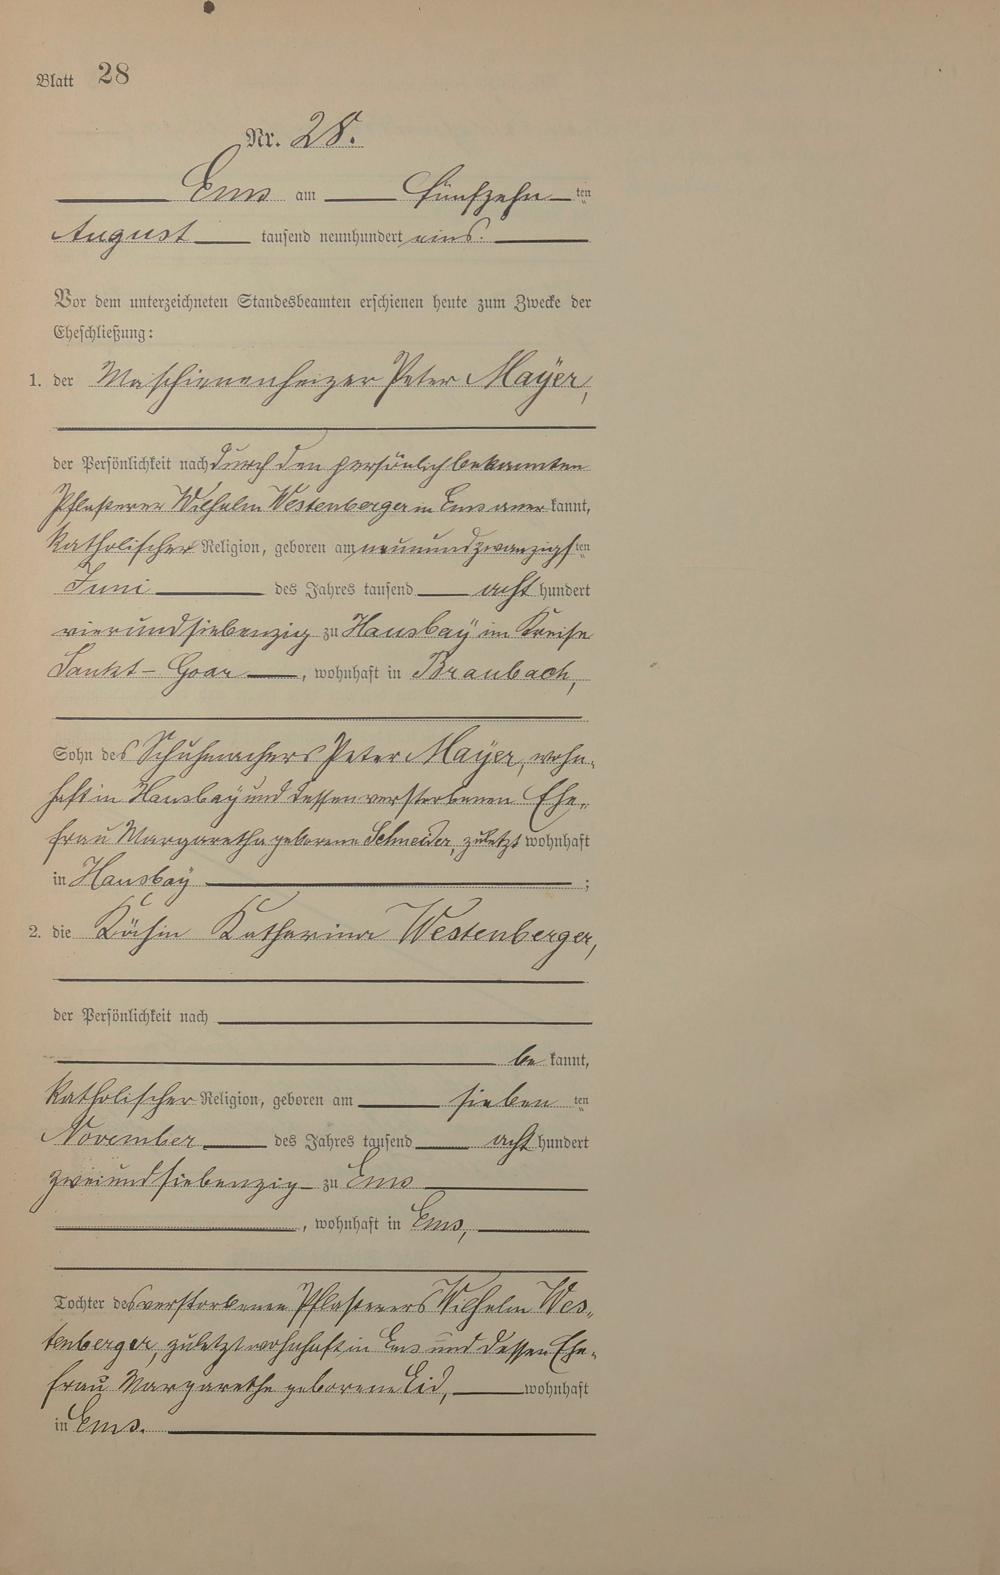 Blatt 28
Nr. 28.
Ems am fünfzehnten
August tausend neunhundert eins.
Vor dem unterzeichneten Standesbeamten erschienen heute zum Zwecke der
Eheschließung:
1. der Maschienenheizer Peter Mayer,
der Persönlichkeit nach durch den persönlich bekannten
Pflasterer Wilhelm Westenberger in Ems aner kannt,
katholischer Religion, geboren am neunundzwanzigsten
Juni des Jahres tausend acht hundert
vierundsiebenzig zu Hausbaÿ im Kreise
Sankt-Goar, wohnhaft in Braubach,
Sohn des Schuhmachers Peter Maÿer, wohn-
haft in Hausbaÿ und dessen verstorbenen Ehe-
frau Margaretha geborene Schneider, zuletzt wohnhaft
in Hausbaÿ ;
2. die Köchin Katharina Westenberger,
der Persönlichkeit nach
be kannt,
katholischer Religion, geboren am sieben ten
November des Jahres tausend acht hundert
zweiundsiebenzig zu Ems
, wohnhaft in Ems,
Tochter des verstorbenen Pflasterers Wilhelm Wes-
tenberger, zuletzt wohnhaft in Ems und dessen Ehe-
frau Margarethe geborene Eid, wohnhaft
in Ems.